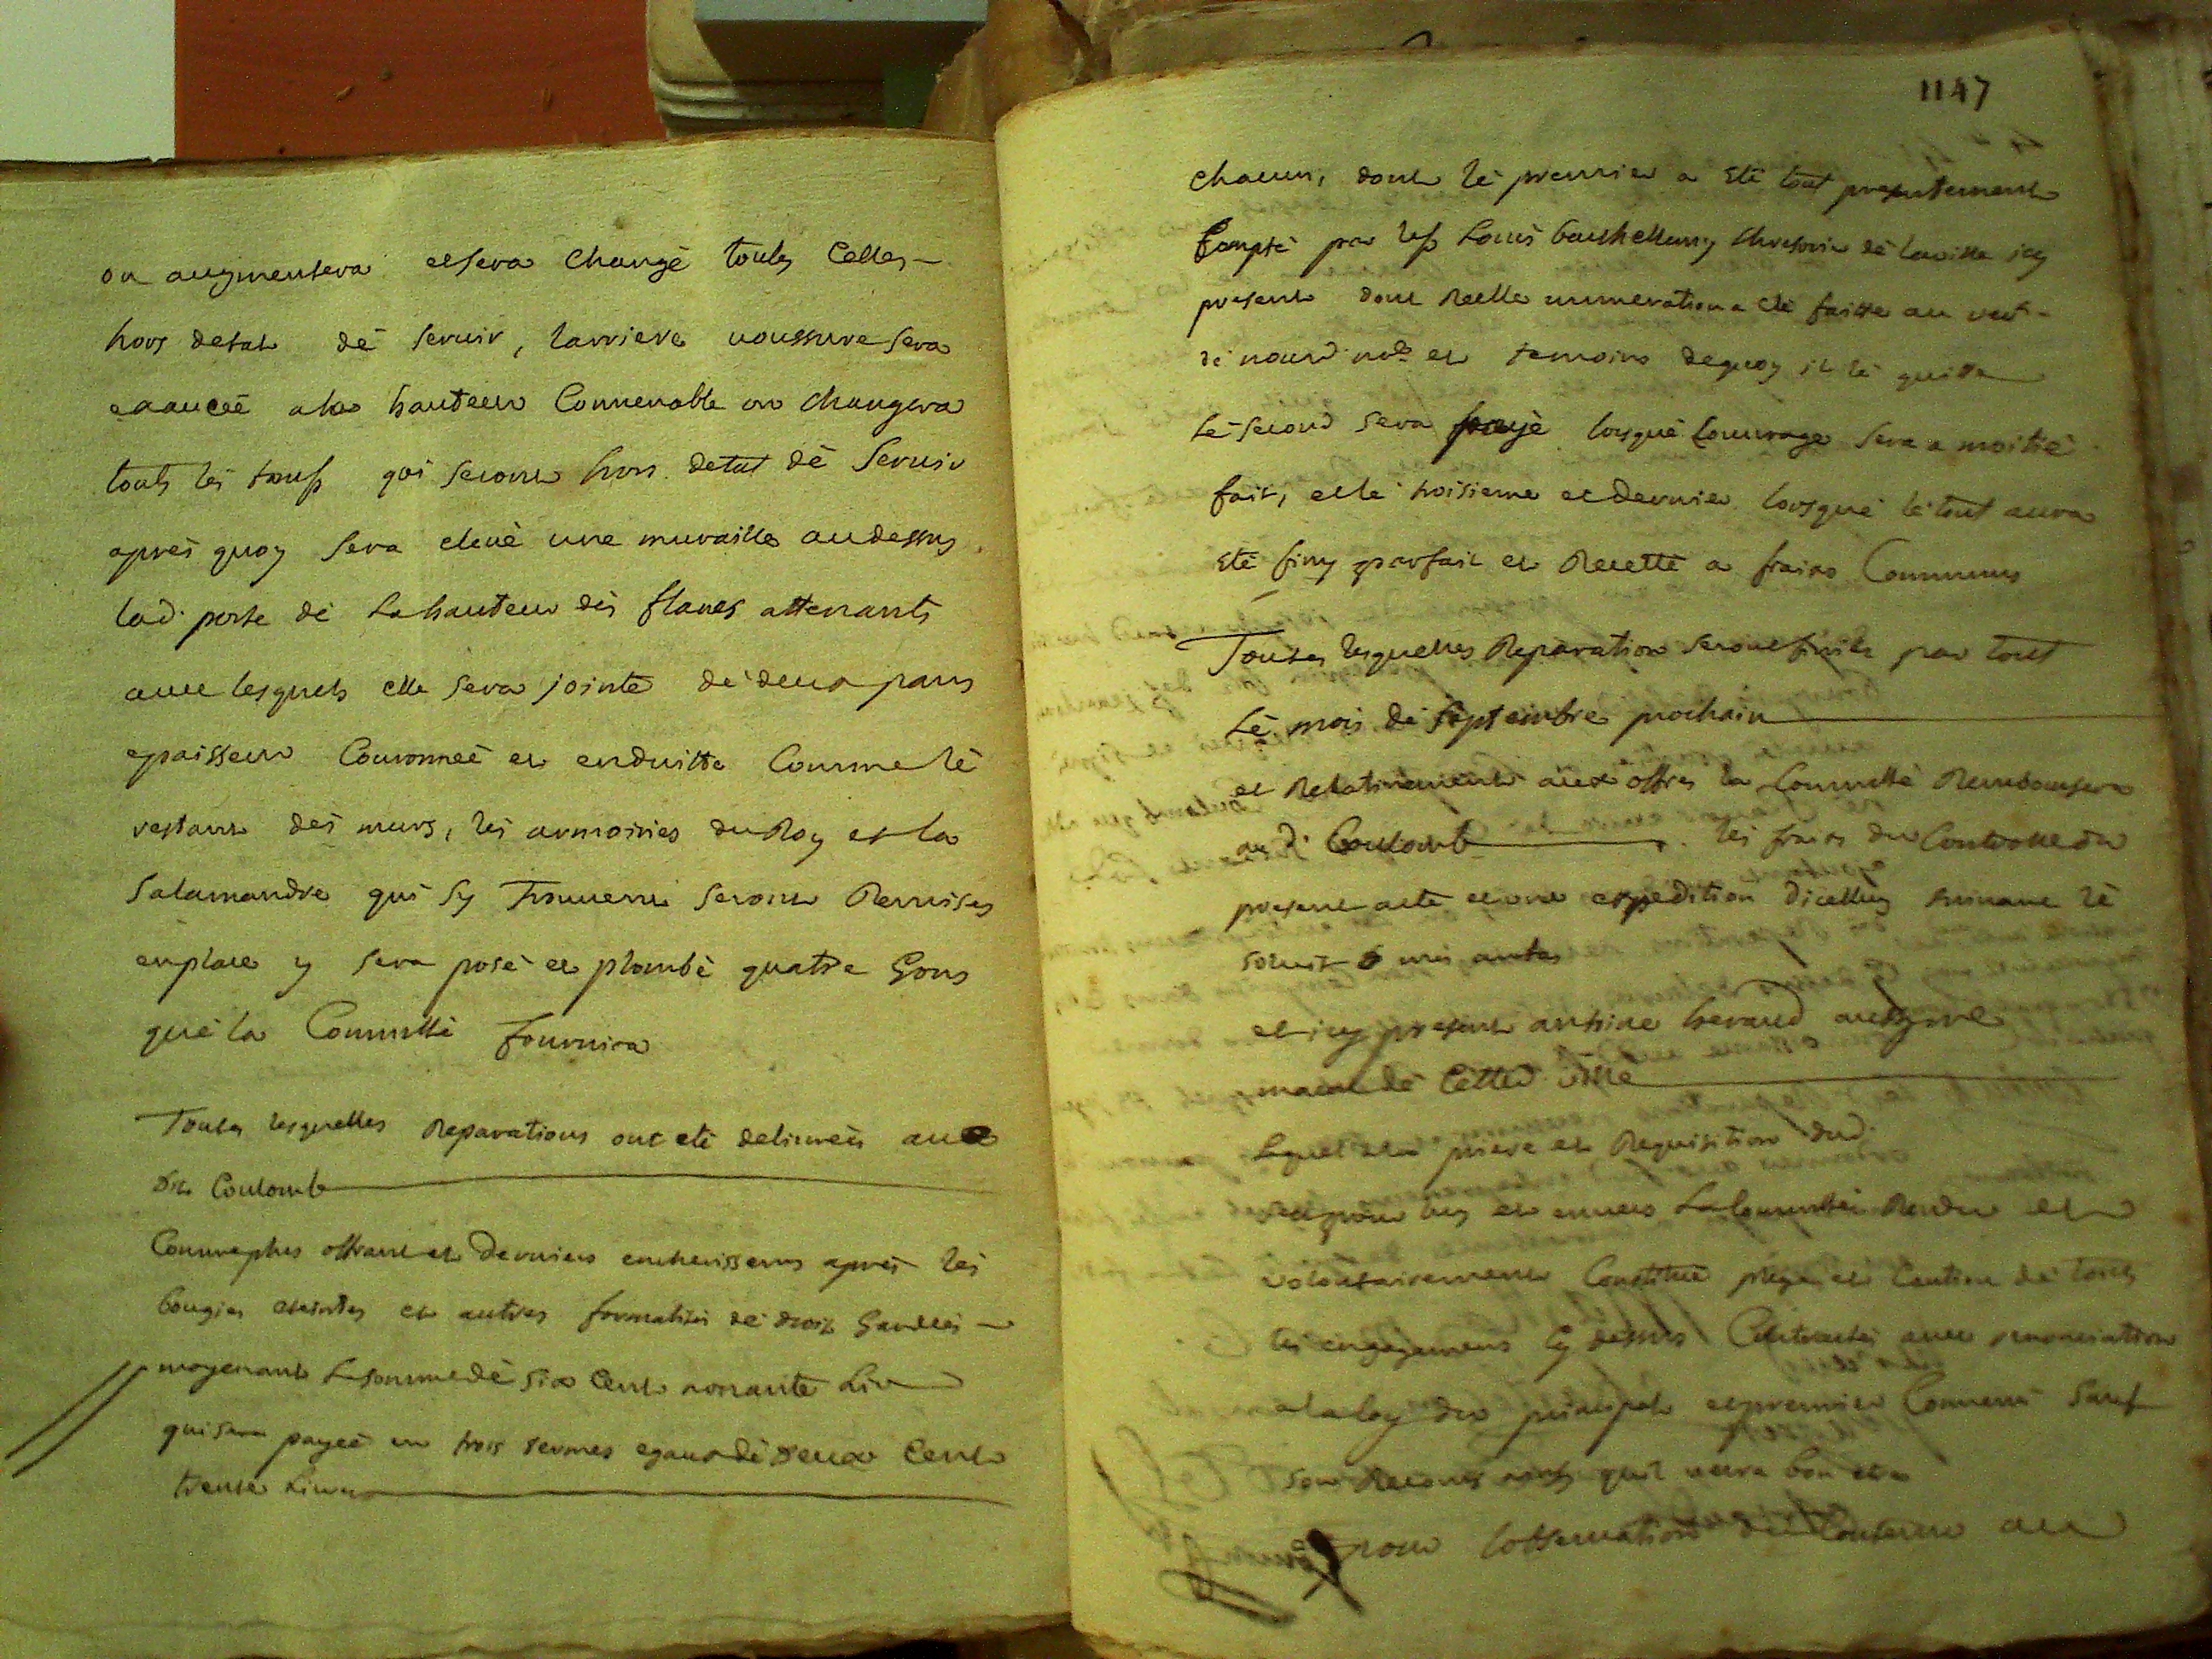 on augmentera et sera changé toutes Celles
hors detat dé Servir, larriere voussure sera
exaucée a la hauteur Convenable on changera
touts lés qui seront hors detat dé Servir
aprés quoy Sera elevé une muraille audessus
lad. porte dé La hauteur dés flancs attenants
avec lesquels elle Sera jointe dé deux pans
epaisseur Couronneé et enduitte Comme lé
restant dés murs, lés armoiries du Roy et la
Salamandre qui Sy Trouvent seront Remises
enplace y Sera posé et plombé quatre Gons
qué la Commté fournira
Toutes lesquelles Reparations ont eté delivreés aux
dits Coulomb
Comme plus offrant et derniers encherisseurs aprés lés
bougies eteintes et autres formalités dé droit Gardeés
moyenant La somme dé six Cent nonante Liv
qui sera payeé en trois termes egaux dé deux Cent
trente Livres
1147
chacun, dont lé premier a eté tout presentement
Compté par Louis thresorier dé la ville icy
present dont Reelle numeration a eté faitte au veu
dé nousd. nore et temoins dequoy il lé quitte
Lé second sera payé lorsqué Louvrage sera a moitié
fait, et lé troisieme et dernier lorsqué lé tout aura
eté finy parfait et Recetté a fraix Communs
Toutes lesquelles Reparation seront finies par tout
Lé mois dé Septembre prochain
et Relativement aux offres la Commté Remboursera
au d. Coulomb les frais du Controlle du
present acte et une expedition dicelluy suivant lé
et icy present antoine heraud
macon dé Cetted. ville
Lequel a la priere et Requisition dud.
et envers La Commté Rendu et
volontairement Constitué plege et Caution dé touts
les engagemens Cy dessus Contractés avec renonciation
a la loy du principal et premier Convenu Sauf
son Recours quil verra bon etre
pour lobservation du Contenu au